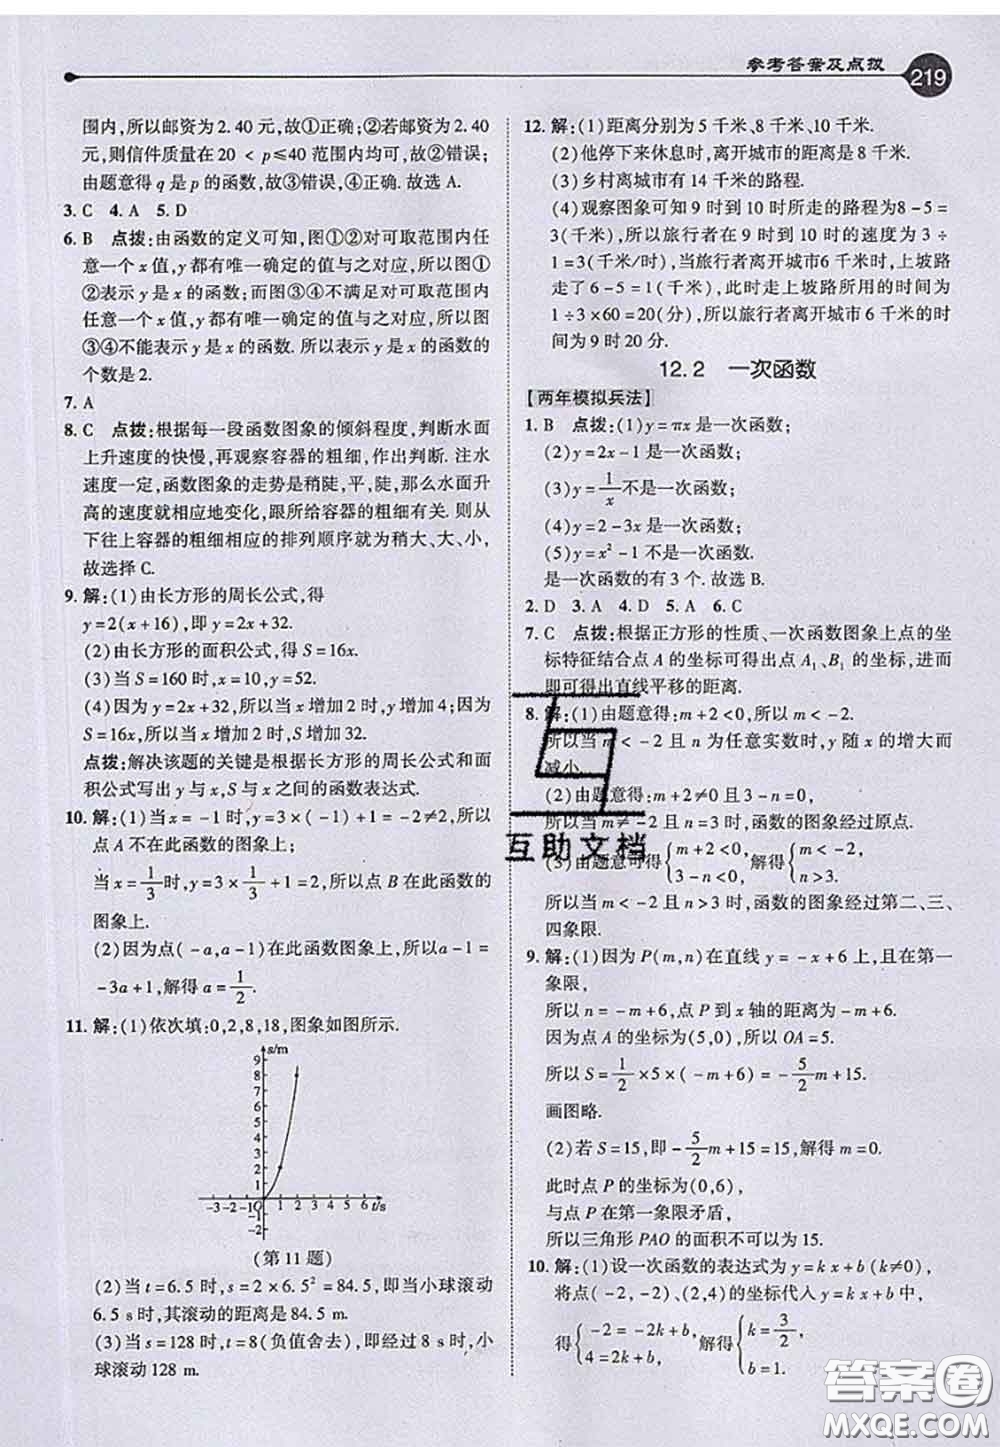 参考答案及点拨
219
围内,所以邮资为2.40元,故①正确;②若邮资为2.40
元,则信件质量在20<p≤40范围内均可,故②错误;
由题意得q是p的函数,故③错误,④正确.故选A.
3. C 4. A 5. D
6. B 点拨:由函数的定义可知,图①②对可取范围内任
意一个x值,y都有唯一确定的值与之对应,所以图①
②表示y是x的函数;而图③④不满足对可取范围内
任意一个x值,y都有唯一确定的值与之对应,所以图
③④不能表示y是x的函数.所以表示y是x的函数的
个数是2.
7. A
8. C 点拨:根据每一段函数图象的倾斜程度,判断水面
上升速度的快慢,再观察容器的粗细,作出判断.注水
速度一定,函数图象的走势是稍陡,平,陡,那么水面升
高的速度就相应地变化,跟所给容器的粗细有关.则从
下往上容器的粗细相应的排列顺序就为稍大、大、小,
故选择C.
9. 解:(1)由长方形的周长公式,得
y=2(x+16),即y=2x+32.
(2)由长方形的面积公式,得S=16x.
(3)当S=160时,x=10,y=52.
(4)因为y=2x+32,所以当x增加2时,y增加4;因为
S=16x,所以当x增加2时,S增加32.
点拨:解决该题的关键是根据长方形的周长公式和面
积公式写出y与x,S与x之间的函数表达式.
10. 解:(1)当x=-1时,y=3×(-1)+1=-2≠2,所以
点A不在此函数的图象上;
当x=1/3时,y=3×1/3+1=2,所以点B在此函数的
图象上.
(2)因为点(-a,a-1)在此函数图象上,所以a-1=
-3a+1,解得a=1/2.
11. 解:(1)依次填:0,2,8,18,图象如图所示.
s/m
9
8
7
6
5
4
3
2
1
-3 -2 -1 O 1 2 3 4 5 6 t/s
-1
-2
(第11题)
(2)当t=6.5时,s=2×6.5²=84.5,即当小球滚动
6.5 s时,其滚动的距离是84.5 m.
(3)当s=128时,t=8(负值舍去),即经过8 s时,小
球滚动128 m.
12. 解:(1)距离分别为5千米、8千米、10千米.
(2)他停下来休息时,离开城市的距离是8千米.
(3)乡村离城市有14千米的路程.
(4)观察图象可知9时到10时所走的路程为8-5=
3(千米),所以旅行者在9时到10时的速度为3÷
1=3(千米/时),当旅行者离开城市6千米时,上坡路
走了6-5=1(千米),此时走上坡路所用的时间为
1÷3×60=20(分),所以旅行者离开城市6千米的时
间为9时20分.
12.2 一次函数
【两年模拟兵法】
1. B 点拨:(1)y=πx是一次函数;
(2)y=2x-1是一次函数;
(3)y=1/x不是一次函数;
(4)y=2-3x是一次函数;
(5)y=x²-1不是一次函数.
是一次函数的有3个.故选B.
2. D 3. A 4. D 5. A 6. C
7. C 点拨:根据正方形的性质、一次函数图象上点的坐
标特征结合点A的坐标可得出点A₁、B₁的坐标,进而
即可得出直线平移的距离.
8. 解:(1)由题意得:m+2<0,所以m<-2.
所以当m<-2且n为任意实数时,y随x的增大而
减小.
(2)由题意得:m+2≠0且3-n=0,
所以当m≠-2且n=3时,函数的图象经过原点.
(3)由题意可得{m+2<0, 3-n<0, 解得{m<-2, n>3.
所以当m<-2且n>3时,函数的图象经过第二、三、
四象限.
9. 解:(1)因为P(m,n)在直线y=-x+6上,且在第一
象限,
所以n=-m+6,点P到x轴的距离为-m+6.
因为点A的坐标为(5,0),所以OA=5.
所以S=1/2×5×(-m+6)=-5/2m+15.
画图略.
(2)若S=15,即-5/2m+15=15,解得m=0.
此时点P的坐标为(0,6),
与点P在第一象限矛盾,
所以三角形PAO的面积不可以为15.
10. 解:(1)设一次函数的表达式为y=kx+b(k≠0),
将点(-2,-2)、(2,4)的坐标代入y=kx+b中,
得{-2=-2k+b, 4=2k+b, 解得{k=3/2, b=1.
互助文档
答案圈
MXQE.COM